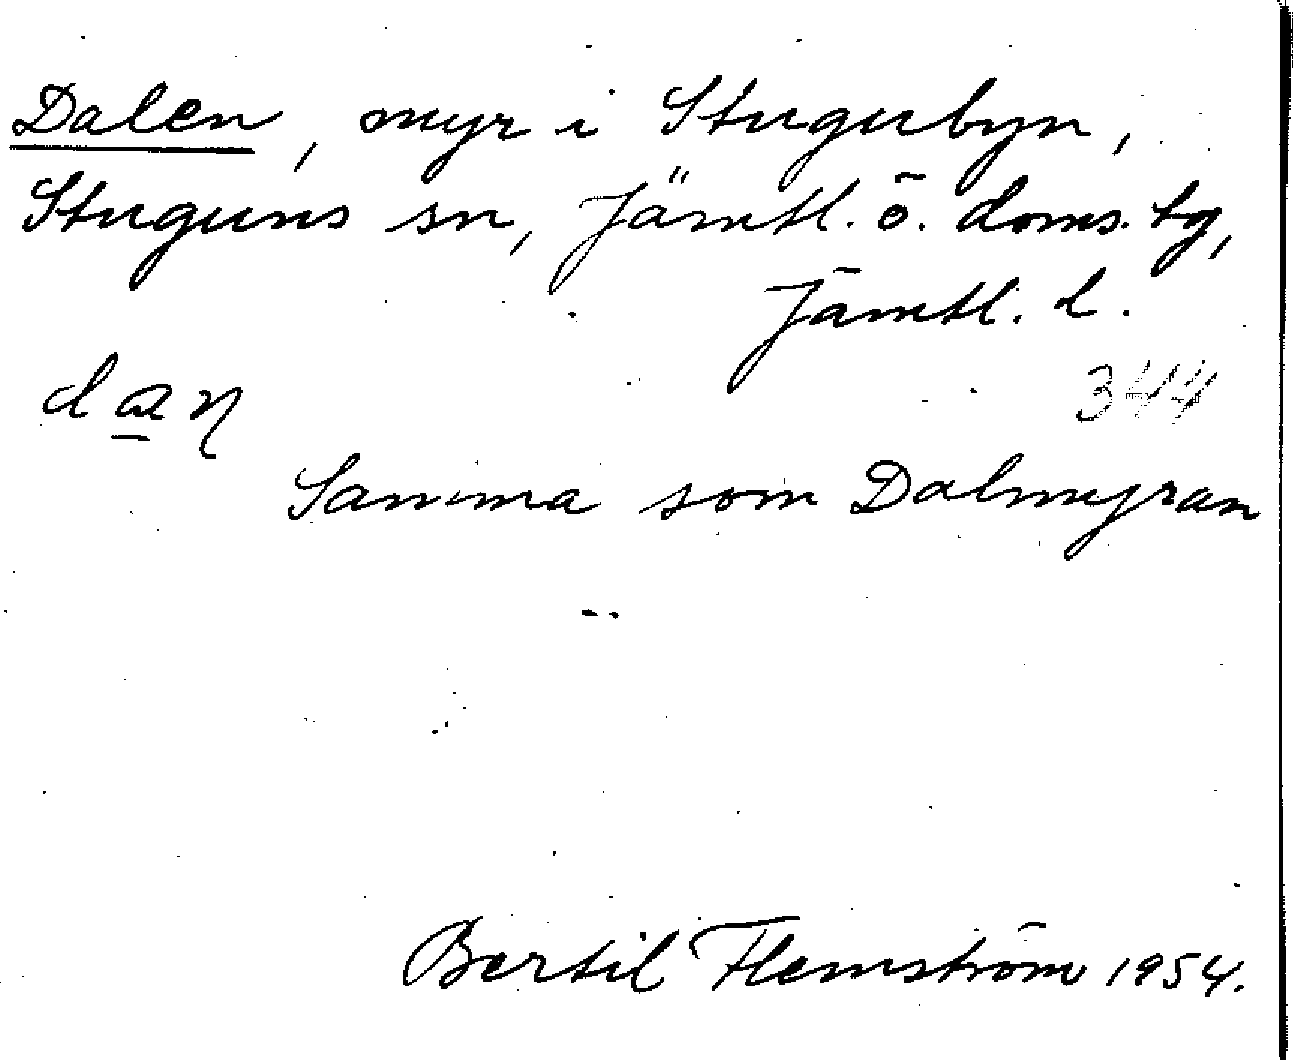 Dalen, myr i Stugubyn,
Stuguns sn, Jämtl. ö. doms. tg,
Jämtl. l.
daŋ
344
Samma som Dalmyran
Bertil Flemström 1954.